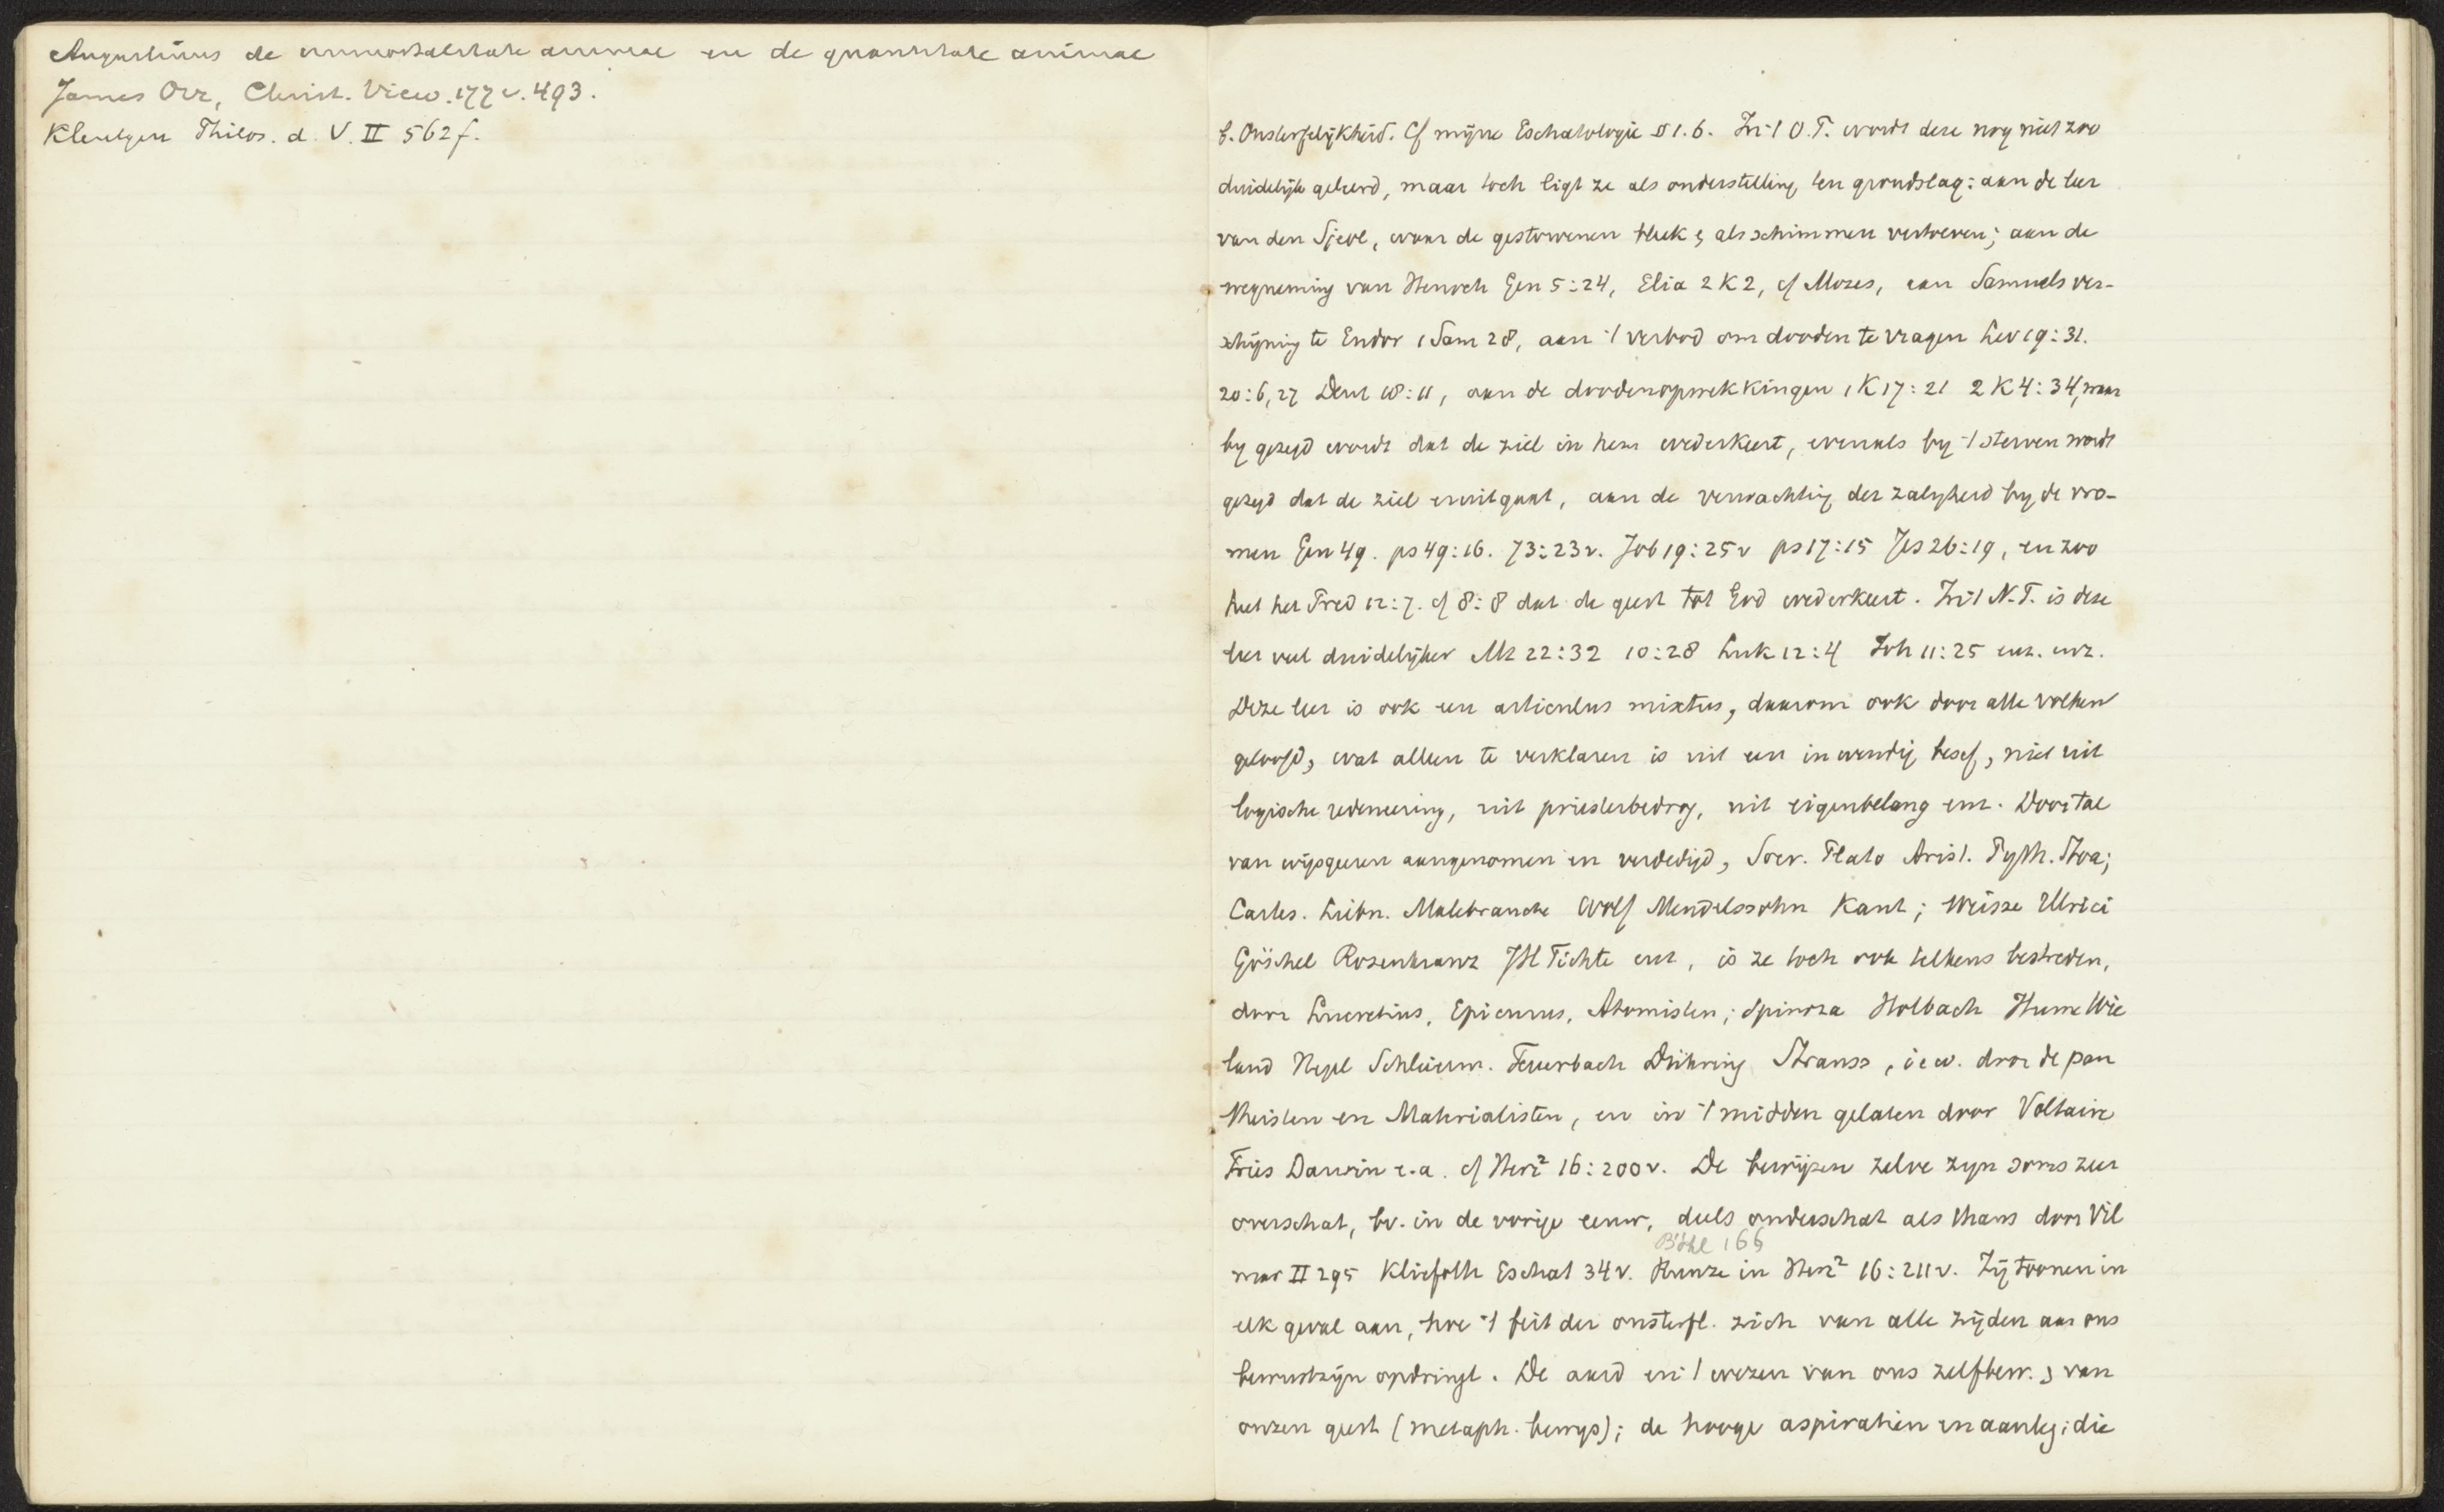 Augustinus de immortalitate animae en de quantitate animae
James Orr, Christ. View. 177 v. 493.
Kleutgen Philos. d. V. II 562 f.
b. Onsterfelijkheid. Cf mijne Eschatologie § 1. b. In 't O.T. wordt deze nog niet zoo
duidelijk geleerd, maar toch ligt ze als onderstelling ten grondslag: aan de leer
van den Sjeol, waar de gestorvenen als schimmen vertoeven; aan de
wegneming van Henoch Gen 5:24, Elia 2 K 2, cf Mozes, aan Samuels ver-
schijning te Endor 1 Sam 28, aan 't verbod om dooden te vragen Lev 19:31.
20:6, 27 Deut 18:11, aan de doodenopwekkingen 1 K 17:21 2 K 4:34, waar
by gezegd wordt dat de ziel in hem wederkeert, evenals by 't sterven wordt
gezegd dat de ziel er uitgaat, aan de verwachting der zaligheid by de vro-
men Gen 49. ps 49:16. 73:23v. Job 19:25v ps 17:15 Jes 26:19, en zoo
heet het Pred 12:7. cf 8:8 dat de geest tot God wederkeert. In 't N.T. is deze
leer veel duidelijker Mt 22:32 10:28 Luk 12:4 Joh 11:25 enz. enz.
Deze leer is ook een articulus mixtus, daarom ook door alle volken
geloofd, wat alleen te verklaren is uit een inwendig besef, niet uit
logische redeneering, uit priesterbedrog, uit eigenbelang enz. Door tal
van wijsgeeren aangenomen en verdedigd, Socr. Plato Arist. Pyth. Stoa;
Cartes. Leibn. Malebranche Wolf Mendelssohn Kant; Weisze Ulrici
Göschel Rosenkranz JH Fichte enz, is ze toch ook telkens bestreden,
door Lucretius, Epicurus, Atomisten; Spinoza Holbach Hume Wie
land Hegel Schleierm. Feuerbach Dühring Strauss, i e w. door de pan
theisten en Materialisten, en in 't midden gelaten door Voltaire
Fries Darwin e.a. cf Herz² 16:200v. De bewijzen zelve zyn soms zeer
overschat, bv. in de vorige eeuw, deels onderschat als thans door Vil
Böhl 166
mar II 295 Kliefoth Eschat 34v. Runze in Herz² 16:211v. Zij toonen in
elk geval aan, hoe 't feit der onsterfl. zich van alle zijden aan ons
bewustzijn opdringt. De aard en 't wezen van ons zelfbew., van
onzen geest (metaph. bewys); de hooge aspiratien en aanleg, die